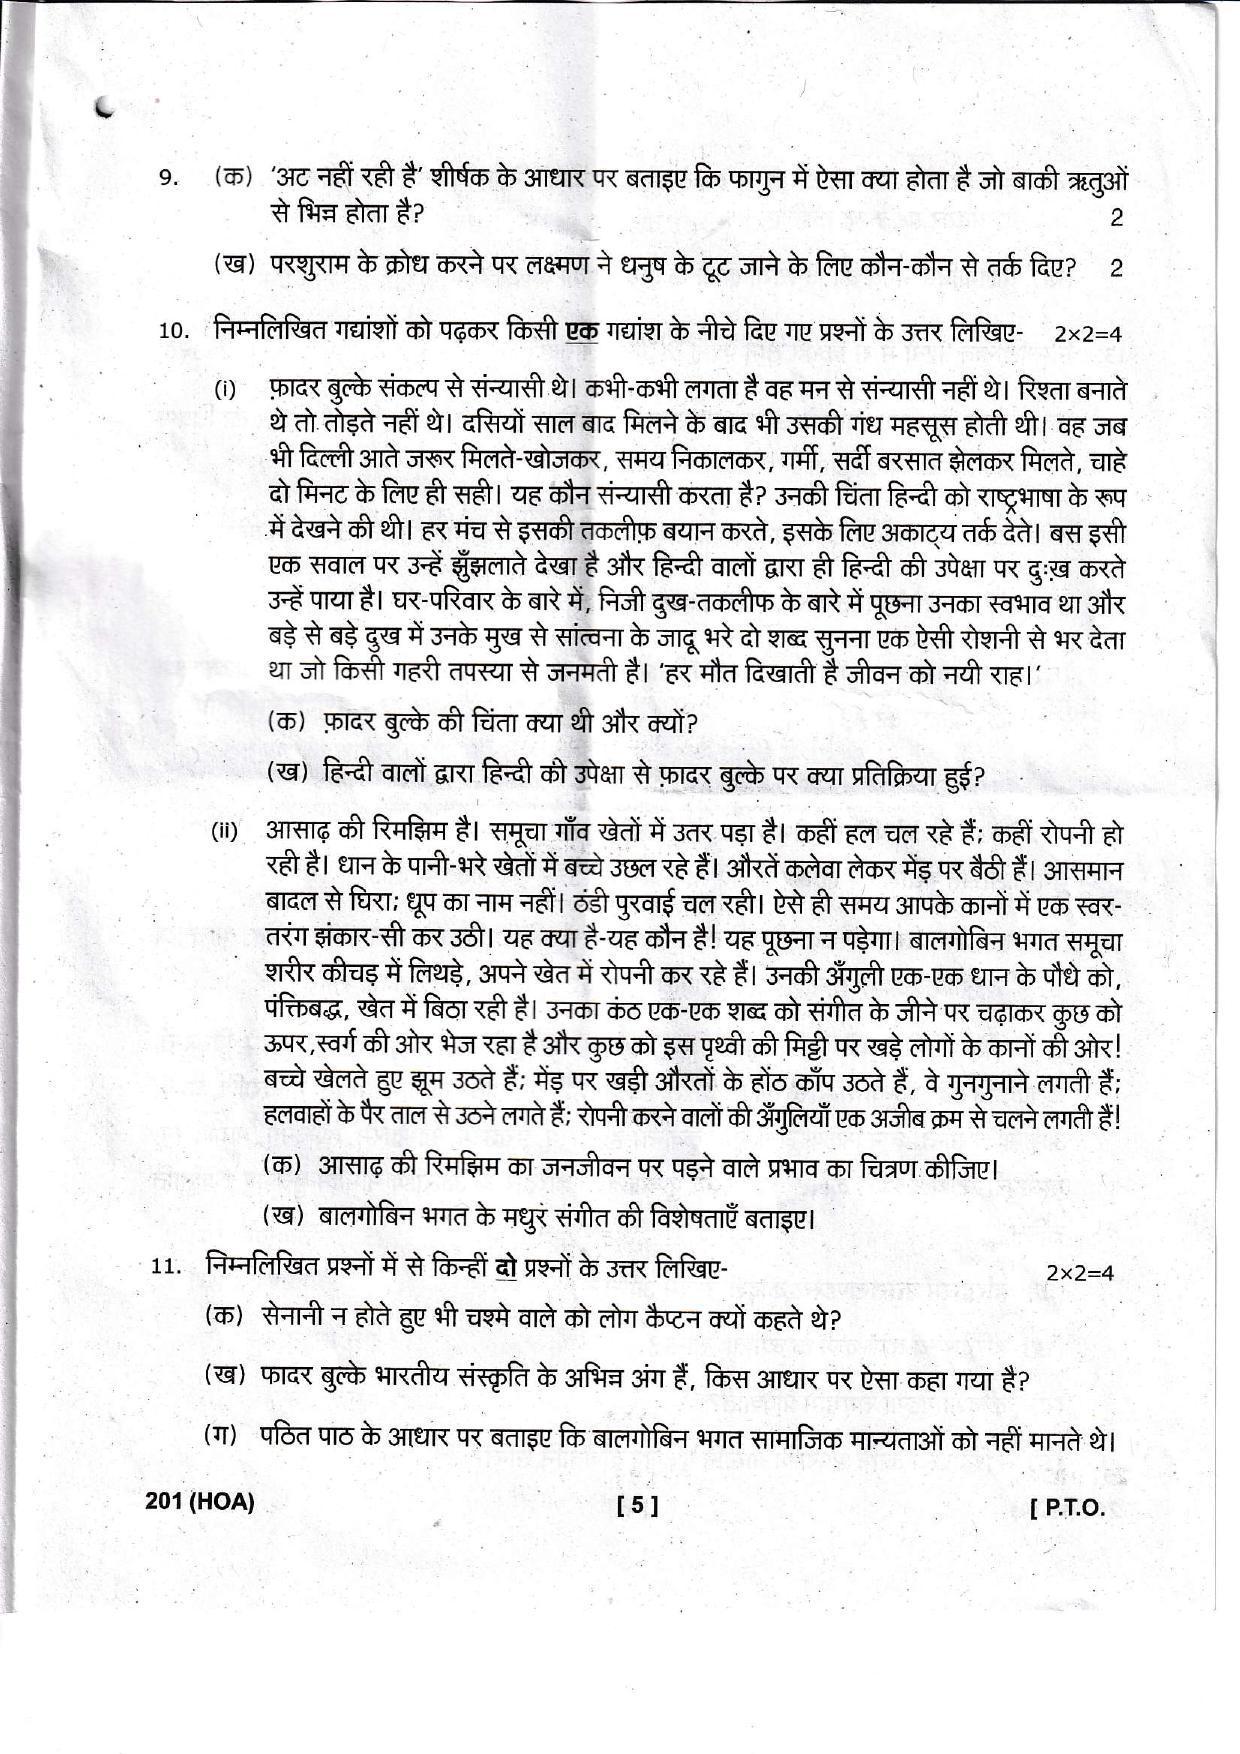 9. (क) ‘अट नहीं रही है’ शीर्षक के आधार पर बताइए कि फागुन में ऐसा क्या होता है जो बाकी ऋतुओं
से भिन्न होता है? 2
(ख) परशुराम के क्रोध करने पर लक्ष्मण ने धनुष के टूट जाने के लिए कौन-कौन से तर्क दिए? 2
10. निम्नलिखित गद्यांशों को पढ़कर किसी एक गद्यांश के नीचे दिए गए प्रश्नों के उत्तर लिखिए- 2×2=4
(i) फ़ादर बुल्के संकल्प से संन्यासी थे। कभी-कभी लगता है वह मन से संन्यासी नहीं थे। रिश्ता बनाते
थे तो तोड़ते नहीं थे। दसियों साल बाद मिलने के बाद भी उसकी गंध महसूस होती थी। वह जब
भी दिल्ली आते जरूर मिलते-खोजकर, समय निकालकर, गर्मी, सर्दी बरसात झेलकर मिलते, चाहे
दो मिनट के लिए ही सही। यह कौन संन्यासी करता है? उनकी चिंता हिन्दी को राष्ट्रभाषा के रूप
में देखने की थी। हर मंच से इसकी तकलीफ़ बयान करते, इसके लिए अकाट्य तर्क देते। बस इसी
एक सवाल पर उन्हें झुँझलाते देखा है और हिन्दी वालों द्वारा ही हिन्दी की उपेक्षा पर दुःख करते
उन्हें पाया है। घर-परिवार के बारे में, निजी दुख-तकलीफ के बारे में पूछना उनका स्वभाव था और
बड़े से बड़े दुख में उनके मुख से सांत्वना के जादू भरे दो शब्द सुनना एक ऐसी रोशनी से भर देता
था जो किसी गहरी तपस्या से जनमती है। ‘हर मौत दिखाती है जीवन को नयी राह।’
(क) फ़ादर बुल्के की चिंता क्या थी और क्यों?
(ख) हिन्दी वालों द्वारा हिन्दी की उपेक्षा से फ़ादर बुल्के पर क्या प्रतिक्रिया हुई?
(ii) आसाढ़ की रिमझिम है। समूचा गाँव खेतों में उतर पड़ा है। कहीं हल चल रहे हैं; कहीं रोपनी हो
रही है। धान के पानी-भरे खेतों में बच्चे उछल रहे हैं। औरतें कलेवा लेकर मेंड़ पर बैठी हैं। आसमान
बादल से घिरा; धूप का नाम नहीं। ठंडी पुरवाई चल रही। ऐसे ही समय आपके कानों में एक स्वर-
तरंग झंकार-सी कर उठी। यह क्या है-यह कौन है! यह पूछना न पड़ेगा। बालगोबिन भगत समूचा
शरीर कीचड़ में लिथड़े, अपने खेत में रोपनी कर रहे हैं। उनकी अँगुली एक-एक धान के पौधे को,
पंक्तिबद्ध, खेत में बिठा रही है। उनका कंठ एक-एक शब्द को संगीत के जीने पर चढ़ाकर कुछ को
ऊपर,स्वर्ग की ओर भेज रहा है और कुछ को इस पृथ्वी की मिट्टी पर खड़े लोगों के कानों की ओर!
बच्चे खेलते हुए झूम उठते हैं; मेंड़ पर खड़ी औरतों के होंठ काँप उठते हैं, वे गुनगुनाने लगती हैं;
हलवाहों के पैर ताल से उठने लगते हैं; रोपनी करने वालों की अँगुलियाँ एक अजीब क्रम से चलने लगती हैं!
(क) आसाढ़ की रिमझिम का जनजीवन पर पड़ने वाले प्रभाव का चित्रण कीजिए।
(ख) बालगोबिन भगत के मधुर संगीत की विशेषताएँ बताइए।
11. निम्नलिखित प्रश्नों में से किन्हीं दो प्रश्नों के उत्तर लिखिए- 2×2=4
(क) सेनानी न होते हुए भी चश्मे वाले को लोग कैप्टन क्यों कहते थे?
(ख) फादर बुल्के भारतीय संस्कृति के अभिन्न अंग हैं, किस आधार पर ऐसा कहा गया है?
(ग) पठित पाठ के आधार पर बताइए कि बालगोबिन भगत सामाजिक मान्यताओं को नहीं मानते थे।
201 (HOA) [ 5 ] [ P.T.O.